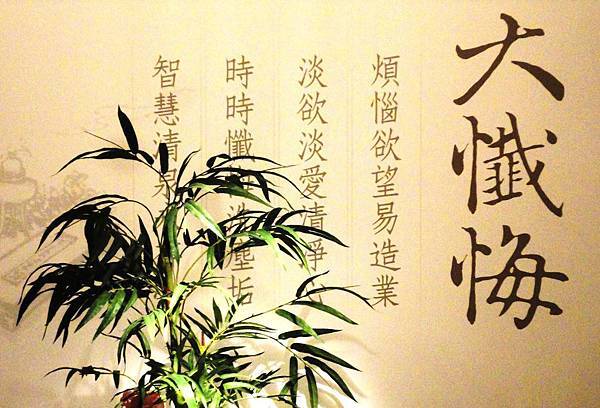 大懺悔
煩惱欲望易造業
淡欲淡愛清淨
時時懺洗塵垢
智慧清泉